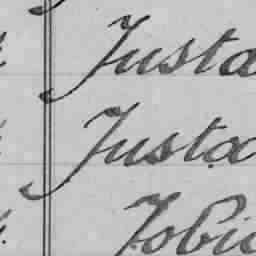 Justa
Justa
Tobi